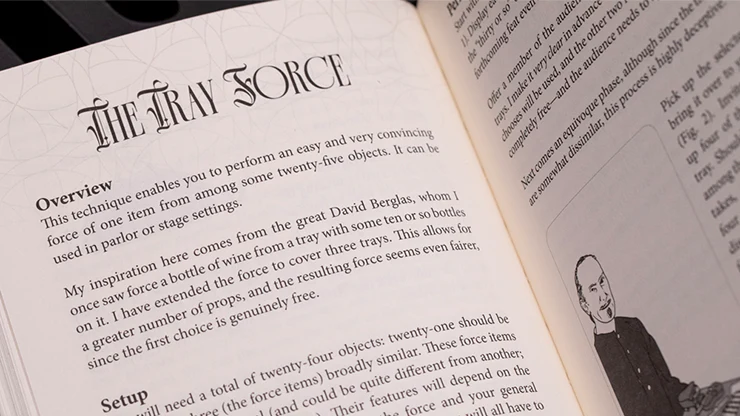 THE TRAY FORCE
Overview
This technique enables you to perform an easy and very convincing
force of one item from among some twenty-five objects. It can be
used in parlor or stage settings.
My inspiration here comes from the great David Berglas, whom I
once saw force a bottle of wine from a tray with some ten or so bottles
on it. I have extended the force to cover three trays. This allows for
a greater number of props, and the resulting force seems even fairer,
since the first choice is genuinely free.
Setup
will need a total of twenty-four objects: twenty-one should be
(the force items) broadly similar. These force items
(and could be quite different from another;
Their features will depend on the
force and your general
will all have to
Start with
1. Display
the "thirty or so"
forthcoming feat even
Offer a member of the audien
trays. I make it very clear in advance
chooses will be used, and the other two
completely free—and the audience needs to
Next comes an equivoque phase, although since the
are somewhat dissimilar, this process is highly deceptive.
Pick up the selec
bring it over to
(Fig. 2). Invit
up four of the
tray. Should
among th
takes,
four